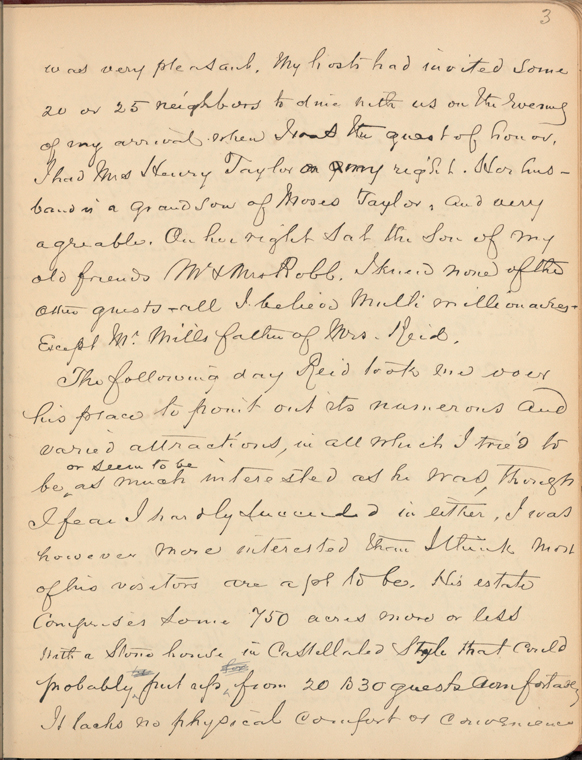 3
was very pleasant. My hosts had invited some
20 or 25 neighbors to dine with us on the Evening
of my arrival when I was the guest of honor.
I had Mrs Henry Taylor on my right. Her hus-
band is a grandson of Moses Taylor, and very
agreable. On her right sat the son of my
old friends Mr & Mrs Robb. I knew none of the
other guests - all I believe Multi millionaires -
Except Mr. Mills father of Mrs. Reid.
The following day Reid took me over
his place to point out its numerous and
varied attractions, in all which I tried to
or seem to be
be as much interested as he was, though
I fear I hardly succeeded in either. I was
however more interested than I think most
of his visitors are apt to be. His estate
comprises some 750 acres more or less
with a stone house in Castellated Style that could
for
probably put up from 20 to 30 guests comfortably
It lacks no physical comfort or convenience